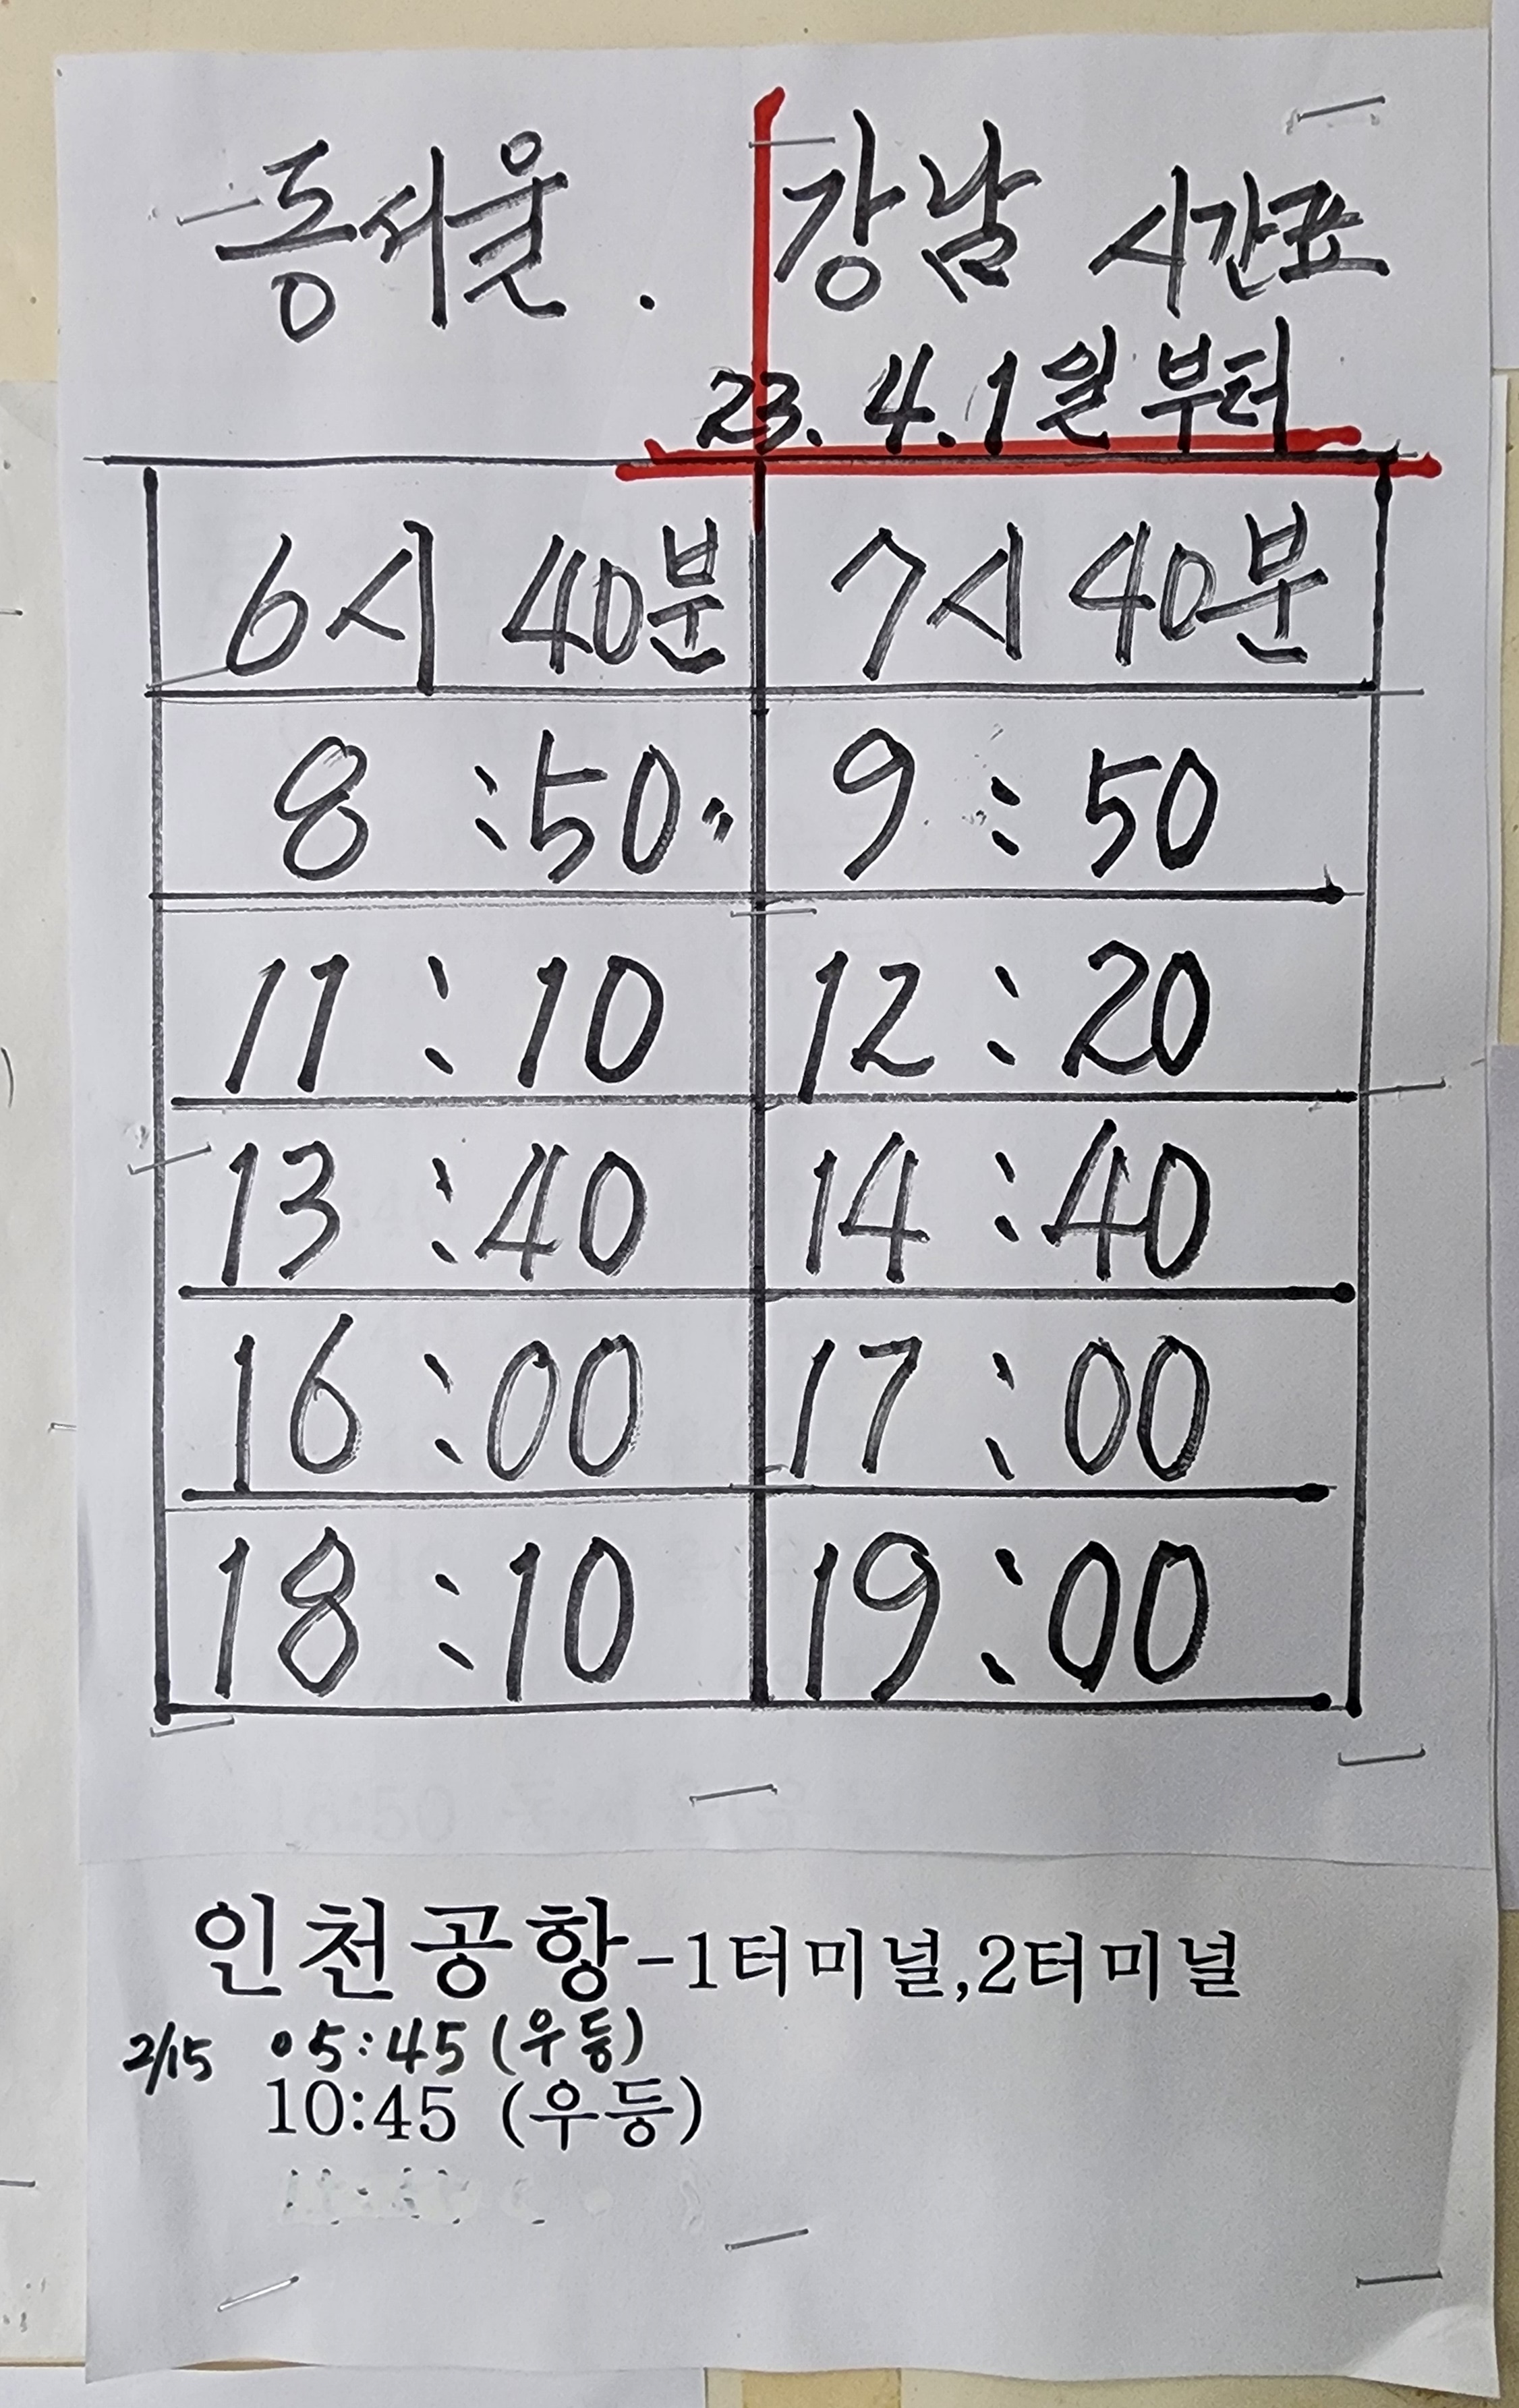 동서울. 강남 시간표
23. 4. 1일부터
6시 40분 7시 40분
8:50〃 9:50
11:10 12:20
13:40 14:40
16:00 17:00
18:10 19:00
인천공항-1터미널,2터미널
2/15 05:45 (우등)
10:45 (우등)